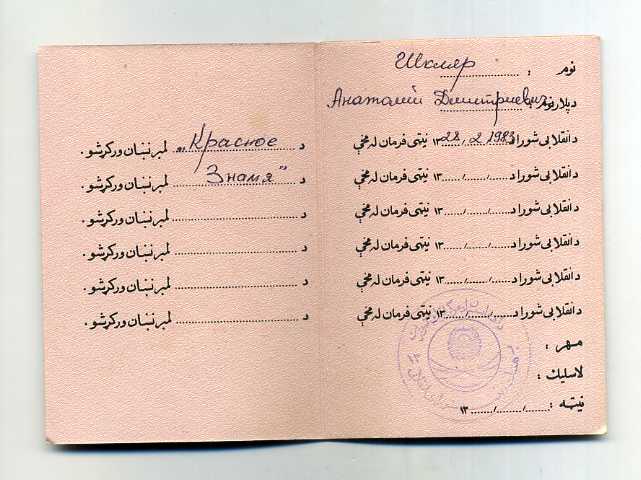 نوم : Шкляр
د پلار نوم : Анатолий Дмитриевич
د انقلابي شورا د 28/2 1983 ۱۳ نیټې فرمان له مخې
د انقلابي شورا د ...../...../..... ۱۳ نیټې فرمان له مخې
د انقلابي شورا د ...../...../..... ۱۳ نیټې فرمان له مخې
د انقلابي شورا د ...../...../..... ۱۳ نیټې فرمان له مخې
د انقلابي شورا د ...../...../..... ۱۳ نیټې فرمان له مخې
د انقلابي شورا د ...../...../..... ۱۳ نیټې فرمان له مخې
مهر :
لاسلیک :
نیټه : ...../...../..... ۱۳
د „Красное لمبر نښان ورکړشو .
د Знамя" لمبر نښان ورکړشو .
د ..... لمبر نښان ورکړشو .
د ..... لمبر نښان ورکړشو .
د ..... لمبر نښان ورکړشو .
د ..... لمبر نښان ورکړشو .